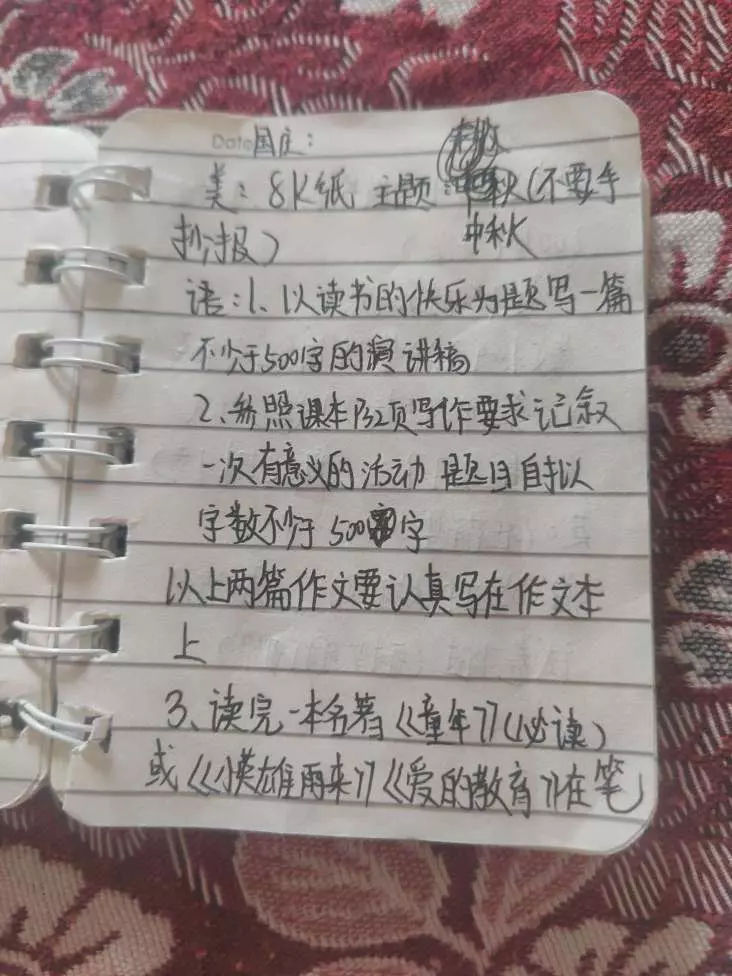 Date 国庆：
美：8K纸 主题：中秋（不要手
中秋
抄报）
语：1、以读书的快乐为题写一篇
不少于500字的演讲稿
2、参照课本P32页写作要求记叙
一次有意义的活动 题目自拟
字数不少于500字
以上两篇作文要认真写在作文本
上
3、读完一本名著《童年》（必读）
或《小英雄雨来》《爱的教育》在笔